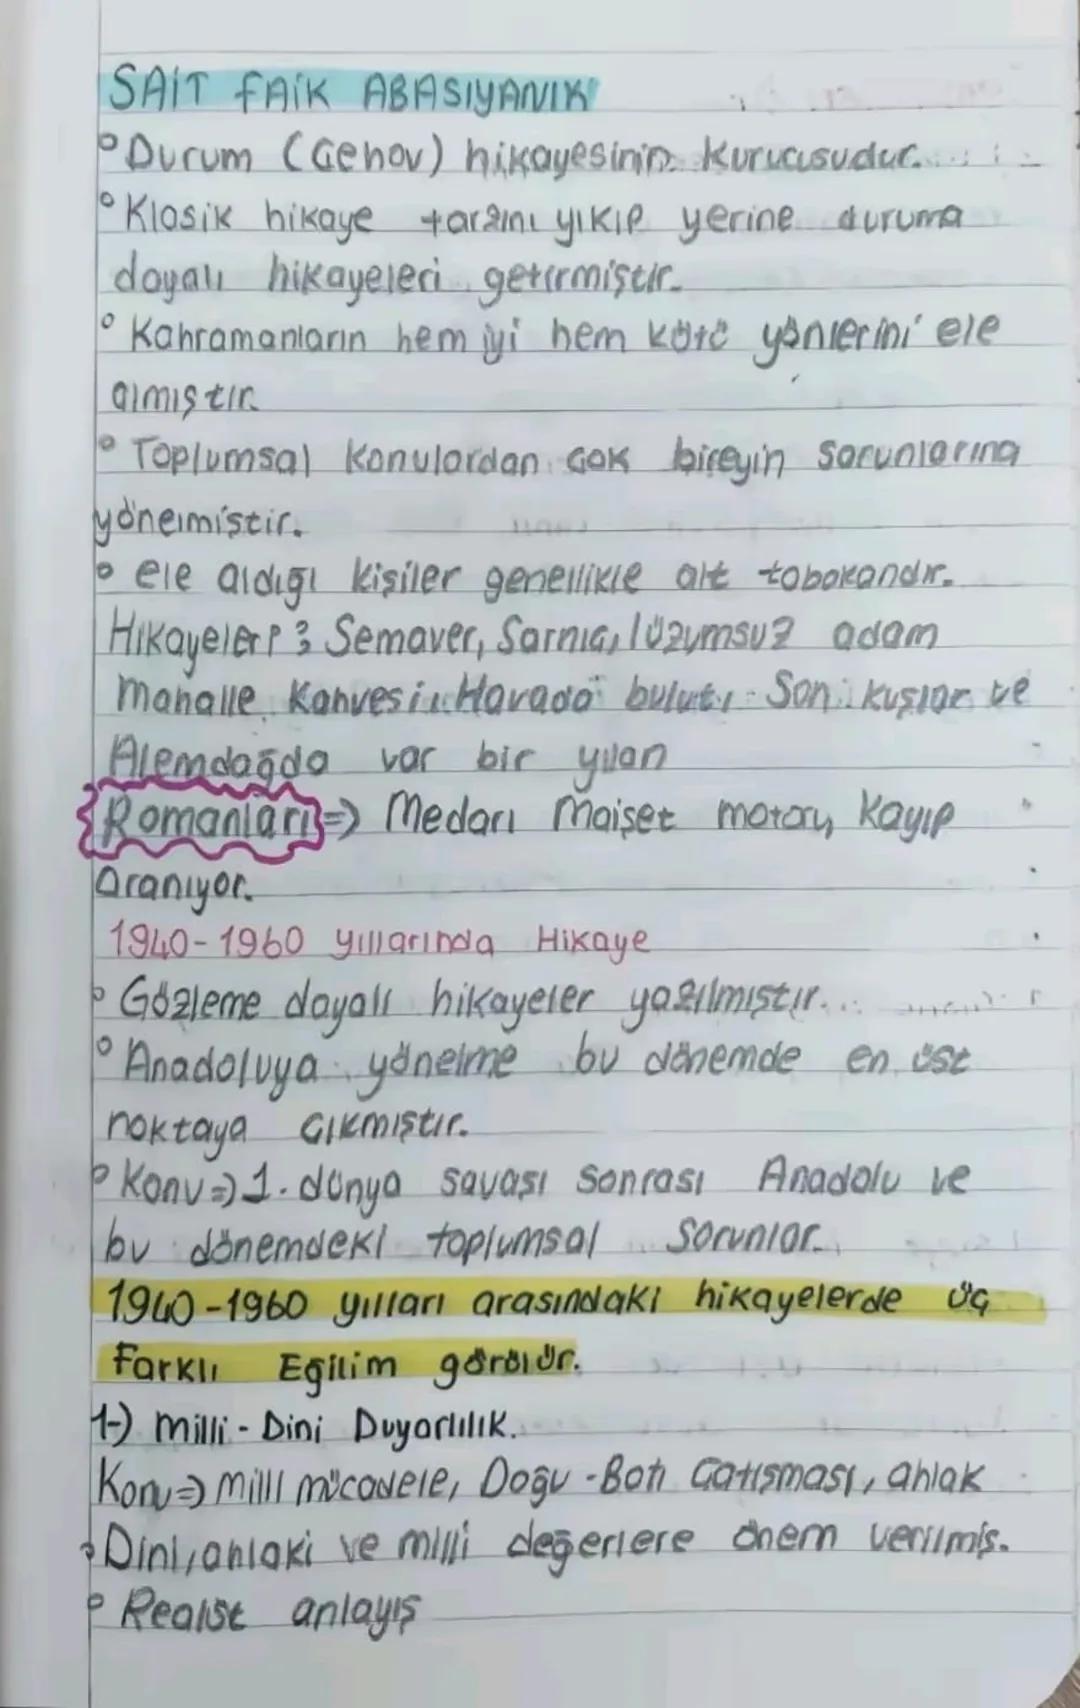 SAİT FAİK ABASIYANIK
° Durum (Çehov) hikayesinin kurucusudur.
° Klasik hikaye tarzını yıkıp yerine duruma
dayalı hikayeleri getirmiştir.
° Kahramanların hem iyi hem kötü yönlerini ele
almıştır.
° Toplumsal konulardan çok bireyin sorunlarına
yönelmiştir.
° ele aldığı kişiler genellikle alt tabakandır.
Hikayeler; Semaver, Sarnıç, lüzumsuz adam
Mahalle Kahvesi, Havada bulut, Son kuşlar ve
Alemdağda var bir yılan
Romanları => Medarı Maişet motoru, Kayıp
aranıyor.
1940-1960 yıllarında Hikaye
° Gözleme dayalı hikayeler yazılmıştır.
° Anadoluya yönelme bu dönemde en üst
noktaya çıkmıştır.
° Konu => 1. dünya savaşı sonrası Anadolu ve
bu dönemdeki toplumsal sorunlar.
1940-1960 yılları arasındaki hikayelerde üç
farklı Eğilim görülür.
1-) Milli - Dini Duyarlılık.
Konu => Milli mücadele, Doğu - Batı Çatışması, ahlak
° Dini, ahlaki ve milli değerlere önem verilmiş.
° Realist anlayış